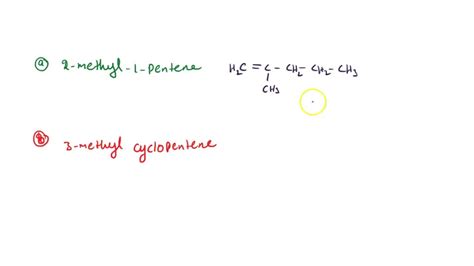 a 2-methyl-1-pentene H₂C = C - CH₂ - CH₂ - CH₃
CH₃
B 3-methyl cyclopentene